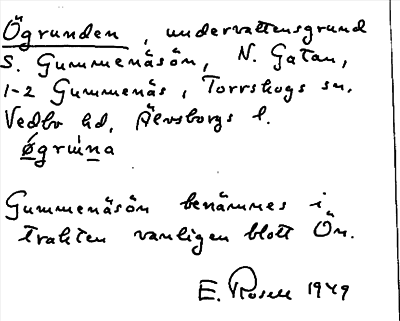 Ögrunden, undervattensgrund
S. Gummenäsön, N. Gatan,
1-2 Gummenäs, Torrskogs sn.
Vedbo hd, Älvsborgs l.
ǿgrùna
Gummenäsön benämnes i
trakten vanligen blott Ön.
E. Rosell 1949